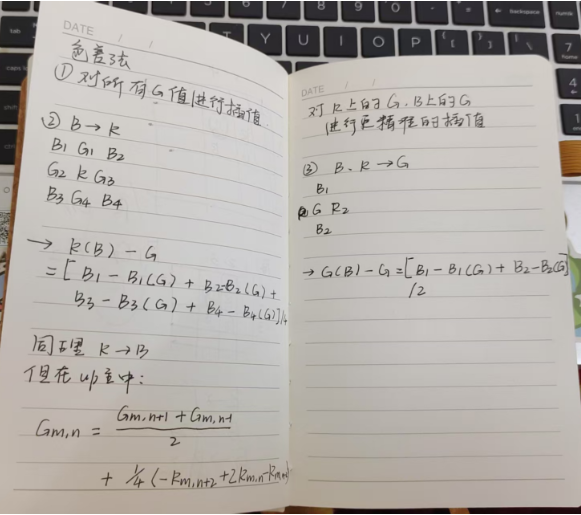 DATE / /
色差法
① 对所有G值进行插值.
② B → R
B1 G1 B2
G2 R G3
B3 G4 B4
→ R(B) - G
= [ B1 - B1(G) + B2-B2(G) +
B3 - B3(G) + B4 - B4(G)]/4
同理 R → B
但在up主中:
Gm,n = (Gm,n+1 + Gm,n-1) / 2
+ 1/4 (-Rm,n+2 + 2Rm,n-Rm,n-2)
DATE / /
对R上的G.B上的G
进行更精准的插值
③ B.R → G
B1
R1 G R2
B2
→ G(B) - G = [B1 - B1(G) + B2-B2(G)]
/2
T Y U I O P { [ } ]
7
home
4